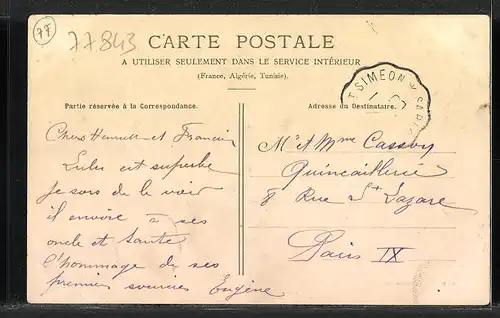 77
77843
CARTE POSTALE
A UTILISER SEULEMENT DANS LE SERVICE INTÉRIEUR
(France, Algérie, Tunisie).
Partie réservée à la Correspondance.
Adresse du Destinataire.
T SIMEON
Chers et Francin
Lulu est superbe
Je sors de le voir
il envoie à ses
oncle et tante
l'hommage de ses
premiers sourires Eugène
Mr et Mme
Quincaillerie
8 Rue St Lazare
Paris IX